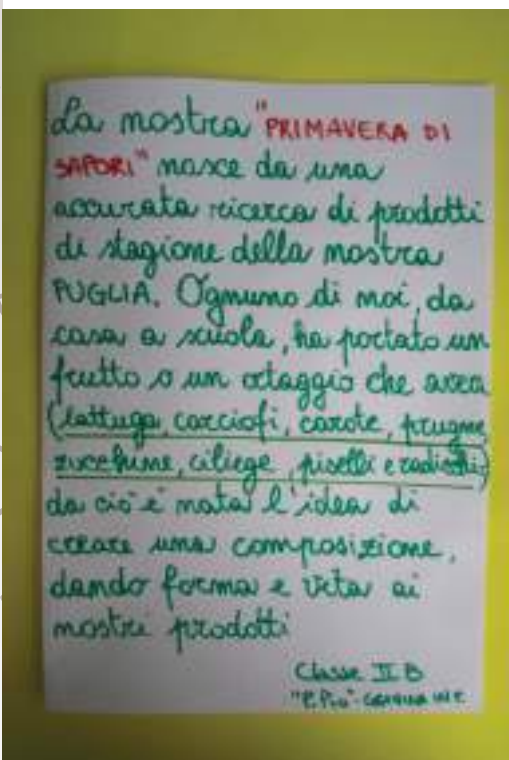 La nostra "PRIMAVERA DI
SAPORI" nasce da una
accurata ricerca di prodotti
di stagione della nostra
PUGLIA. Ognuno di noi, da
casa a scuola, ha portato un
frutto o un ortaggio che aveva
(lattuga, carciofi, carote, prugne
zucchine, ciliege, piselli e radicchi)
da ciò è nata l'idea di
creare una composizione,
dando forma e vita ai
nostri prodotti
Classe II B